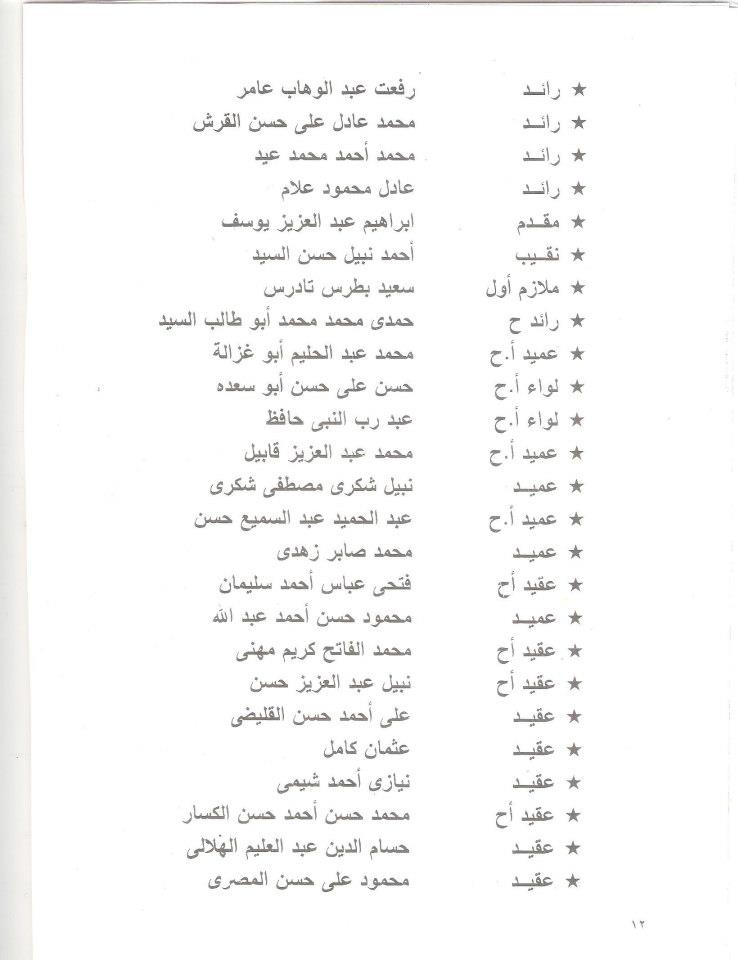 ★ رائـد رفعت عبد الوهاب عامر
★ رائـد محمد عادل على حسن القرش
★ رائـد محمد أحمد محمد عيد
★ رائـد عادل محمود علام
★ مقـدم ابراهيم عبد العزيز يوسف
★ نقـيب أحمد نبيل حسن السيد
★ ملازم أول سعيد بطرس تادرس
★ رائد ح حمدى محمد محمد أبو طالب السيد
★ عميد أ.ح محمد عبد الحليم أبو غزالة
★ لواء أ.ح حسن على حسن أبو سعده
★ لواء أ.ح عبد رب النبى حافظ
★ عميد أ.ح محمد عبد العزيز قابيل
★ عميـد نبيل شكرى مصطفى شكرى
★ عميد أ.ح عبد الحميد عبد السميع حسن
★ عميـد محمد صابر زهدى
★ عقيد أح فتحى عباس أحمد سليمان
★ عميـد محمود حسن أحمد عبد الله
★ عقيد أح محمد الفاتح كريم مهنى
★ عقيد أح نبيل عبد العزيز حسن
★ عقيـد على أحمد حسن القليضى
★ عقيـد عثمان كامل
★ عقيـد نيازى أحمد شيمى
★ عقيد أح محمد حسن أحمد حسن الكسار
★ عقيـد حسام الدين عبد العليم الهلالى
★ عقيـد محمود على حسن المصرى
١٢